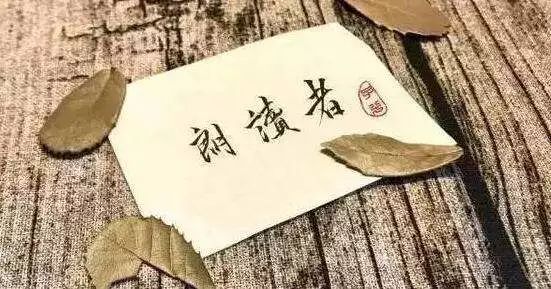 朗讀者